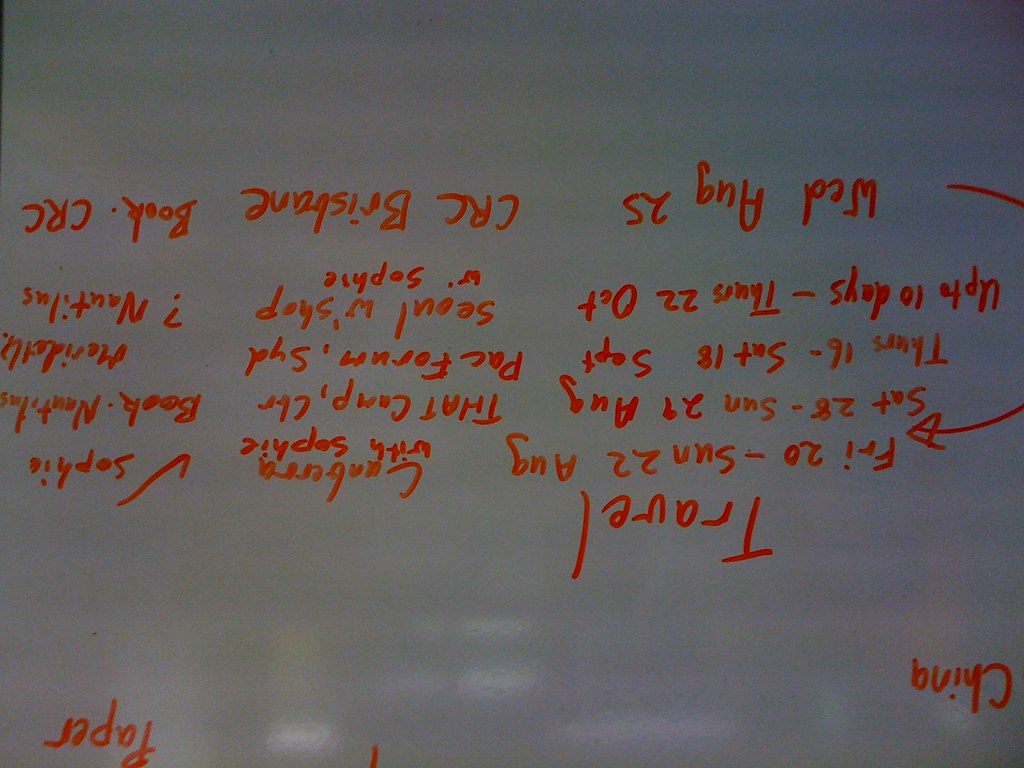 Paper
China
Travel
Fri 20 - Sun 22 Aug Canberra with Sophie ✓ Sophie
Sat 28 - Sun 29 Aug THAT Camp, Cbr Book. Nautilus
Thurs 16 - Sat 18 Sept Pac Forum, Syd Meridith.
Up to 10 days - Thurs 22 Oct Seoul W'shop w. Sophie ? Nautilus
Wed Aug 25 CRC Brisbane Book. CRC